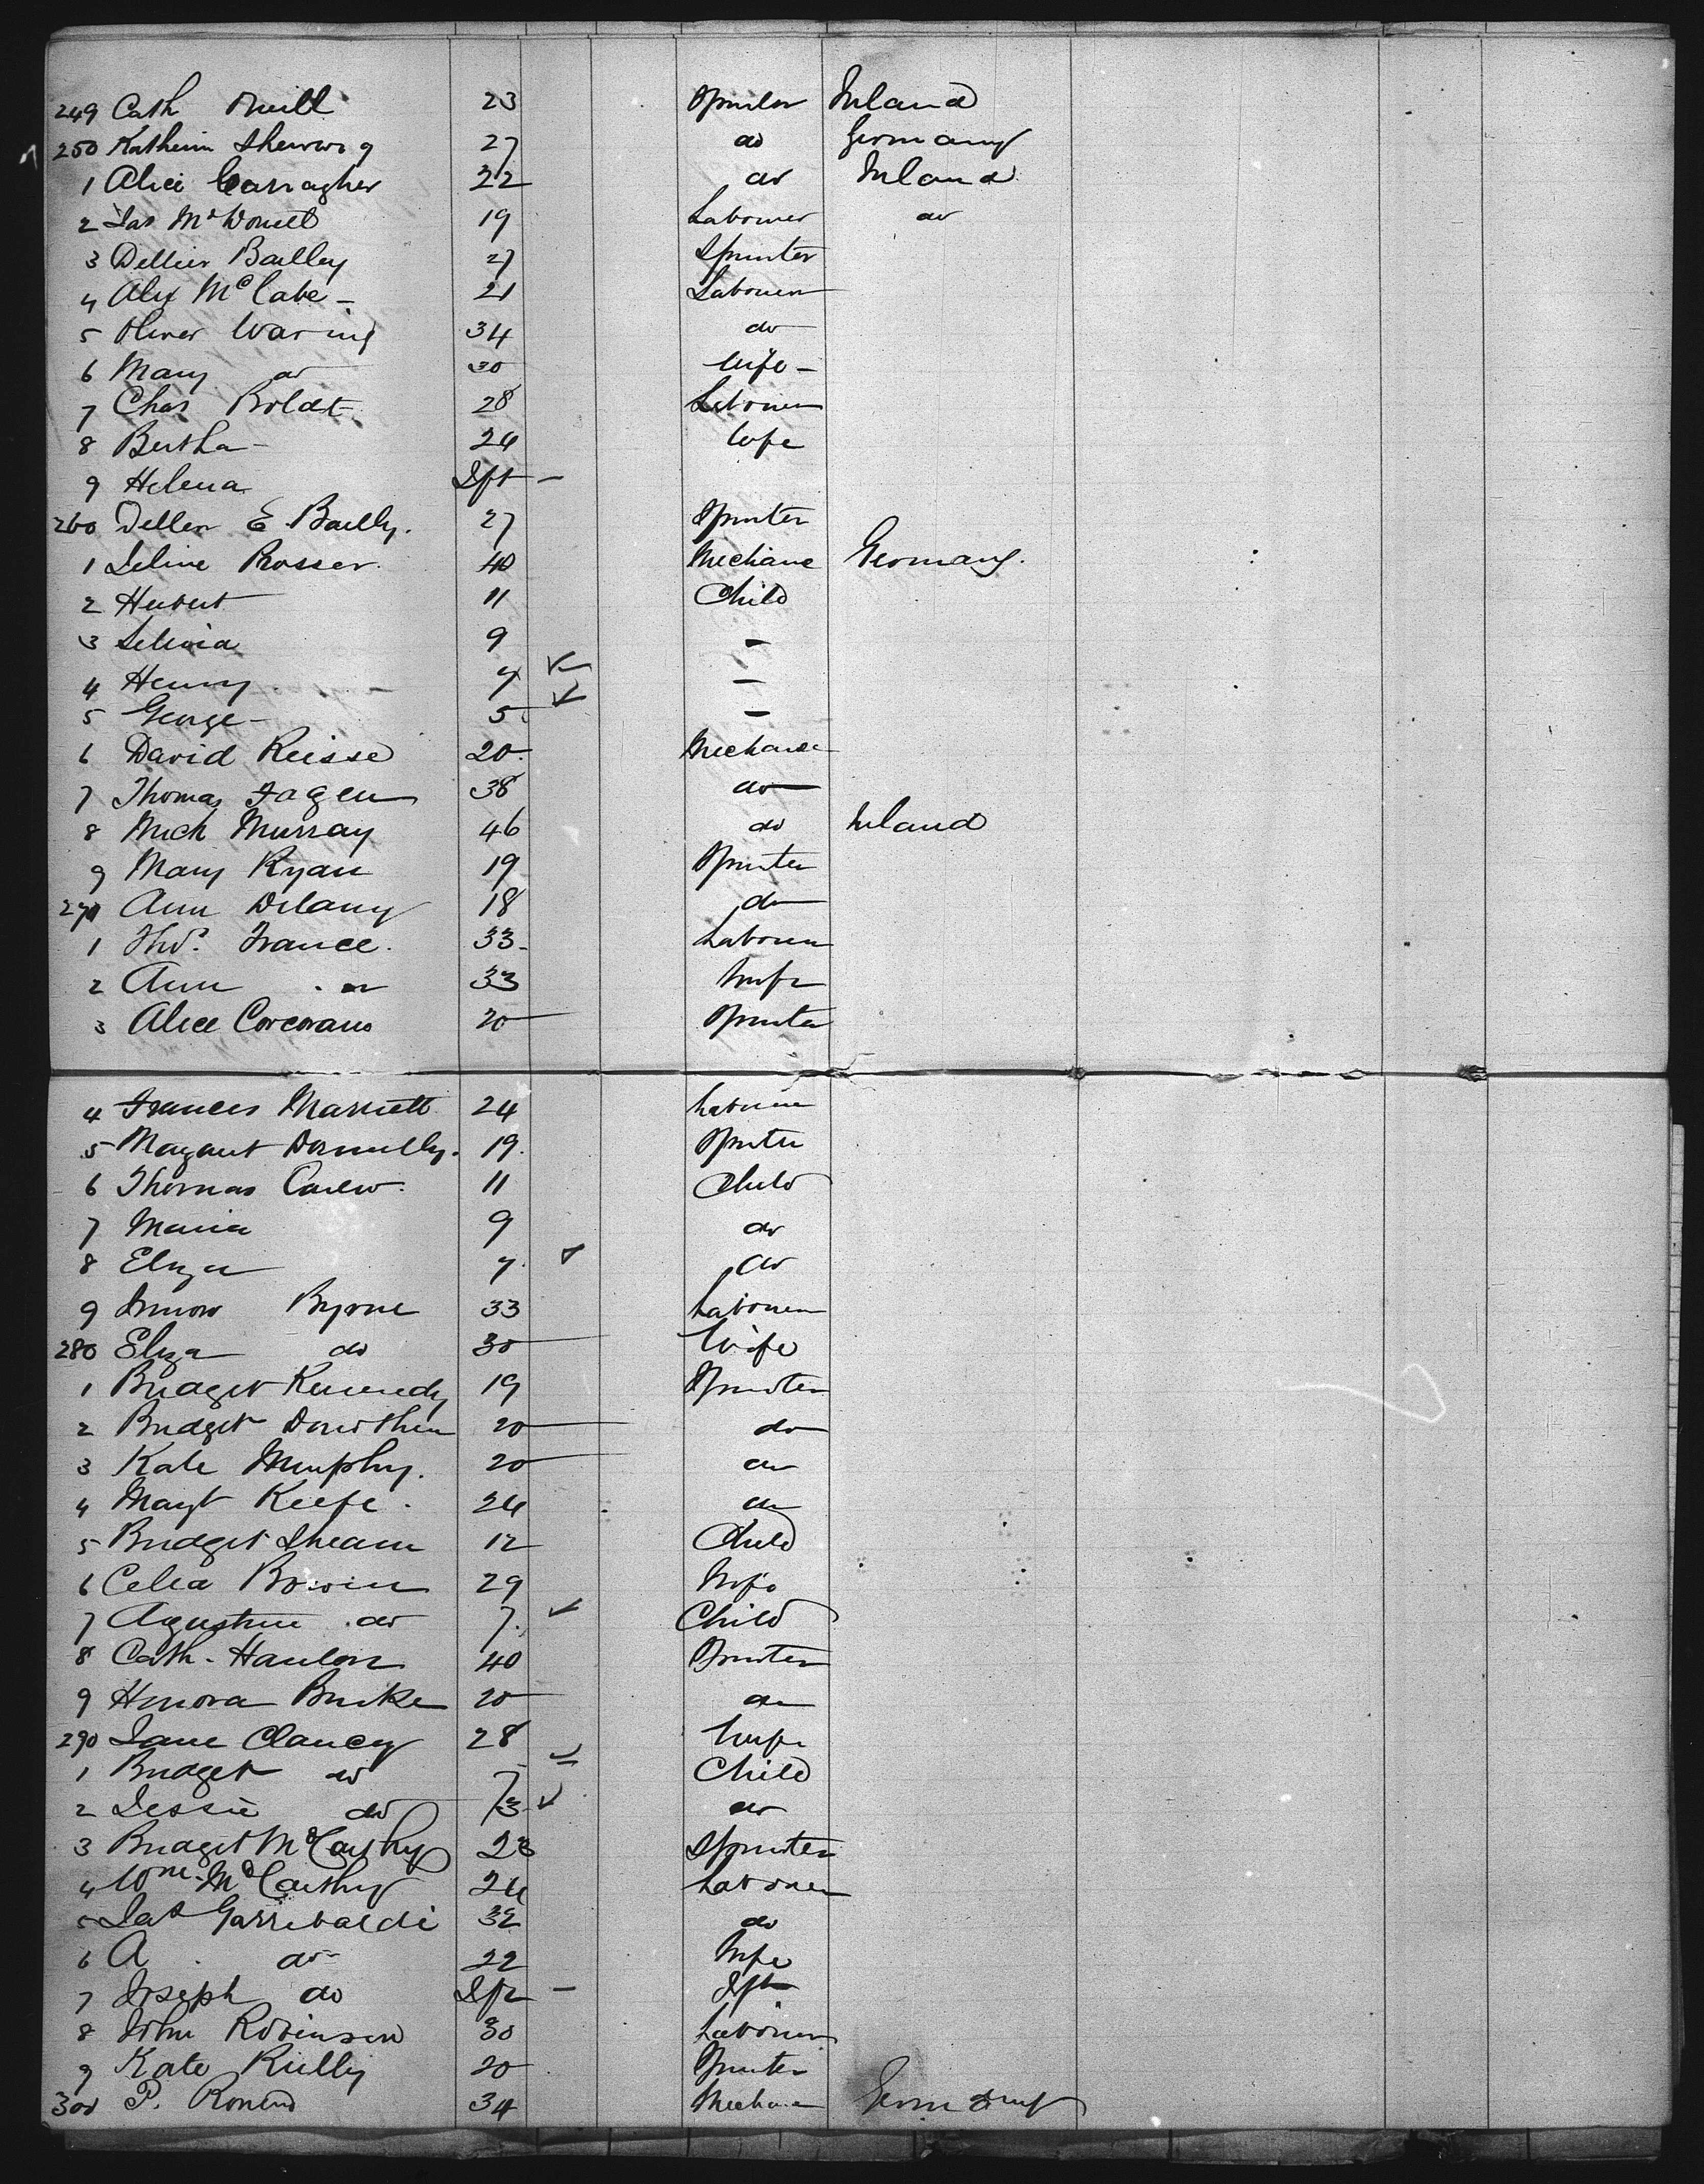 249 Cath Neill 23 Spinster Ireland
250 27 do Germany
1 Alice Carragher 22 do Ireland
2 Jas McDonell 19 Labourer do
3 Bailley 27 Spinster
4 Alex McCabe - 21 Labourer
5 Oliver Waring 34 do
6 Mary do 30 Wife -
7 Chas Boldt 28 Labourer
8 Bertha - 24 Wife
9 Helena Ift -
260 E Bailly. 27 Spinster
1 Rosser. 40 Mechanic Germany.
2 Hubert 11 Child
3 9 -
4 Henry 7 -
5 George - 5 -
6 David Reisse 20 Mechanic
7 Thomas Fagen 38 do
8 Mich Murray 46 do Ireland
9 Mary Ryan 19 Spinster
270 Ann Delany 18 do
1 Thos. France. 33 Labourer
2 Ann do 33 Wife
3 Alice Corcoran 20 Spinster
4 Frances Marriett 24 Labourer
5 Margaret Donnelly. 19. Spinster
6 Thomas Carew. 11 Child
7 Maria 9 do
8 Eliza 7. do
9 Byrne 33 Labourer
280 Eliza do 30 Wife
1 Bridget Kennedy 19 Spinster
2 Bridget 20 do
3 Kate Murphy. 20 do
4 Margt Keefe. 24 do
5 Bridget 12 Child
6 Celia 29 Wife
7 Agustine do 7. Child
8 Cath. Hanlon 40 Spinster
9 Honora Burke 20 do
290 Jane Clancy 28 Wife
1 Bridget do 7 Child
2 Jessie do 3 do
3 Bridget McCarthy 23 Spinster
4 Wm. McCarthy 24 Labourer
5 Jas Garribaldi 32 do
6 A do 22 Wife
7 Joseph do Ift - Ift
8 John Robinson 30 Labourer
9 Kate Rielly 20 Spinster
300 P. 34 Mechanic Germany